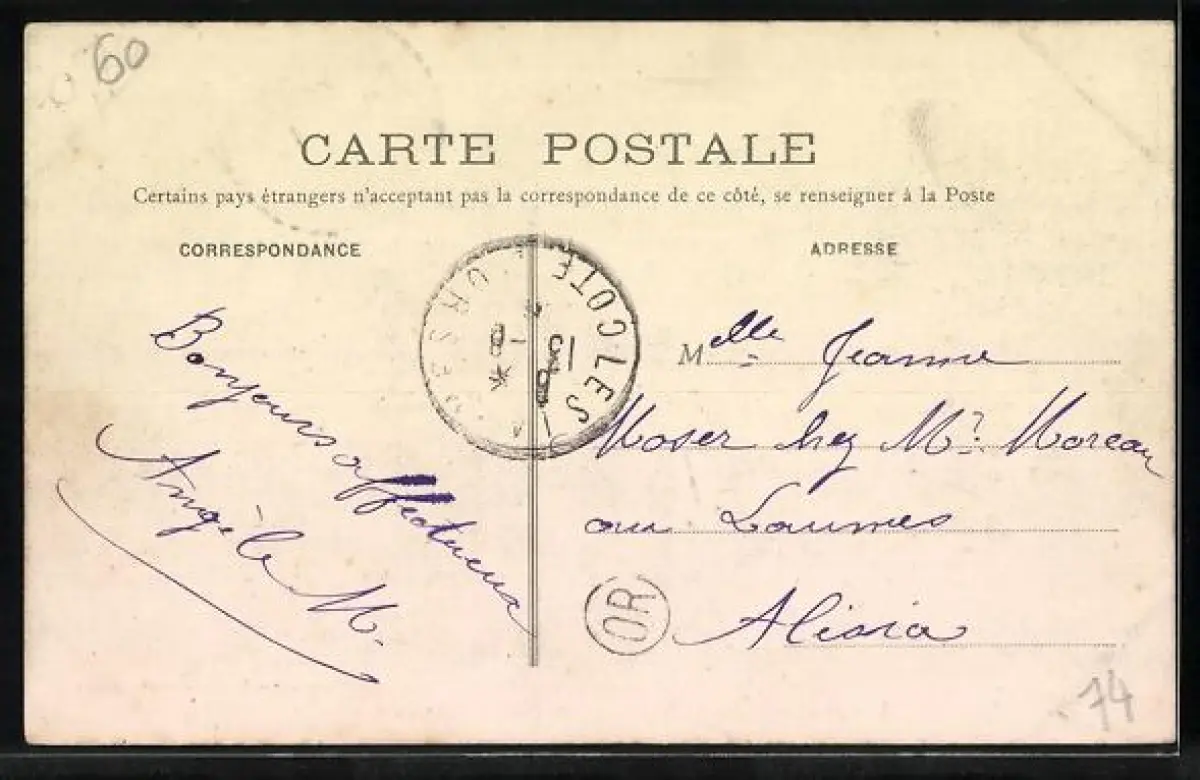 60
CARTE POSTALE
Certains pays étrangers n'acceptant pas la correspondance de ce côté, se renseigner à la Poste
CORRESPONDANCE
ADRESSE
Bonjours affectueux
Angèle M.
LES
COTE
D'OR
Melle Jeanne
Moser chez Mr. Moreau
au Laumes
Alisia
OR
74